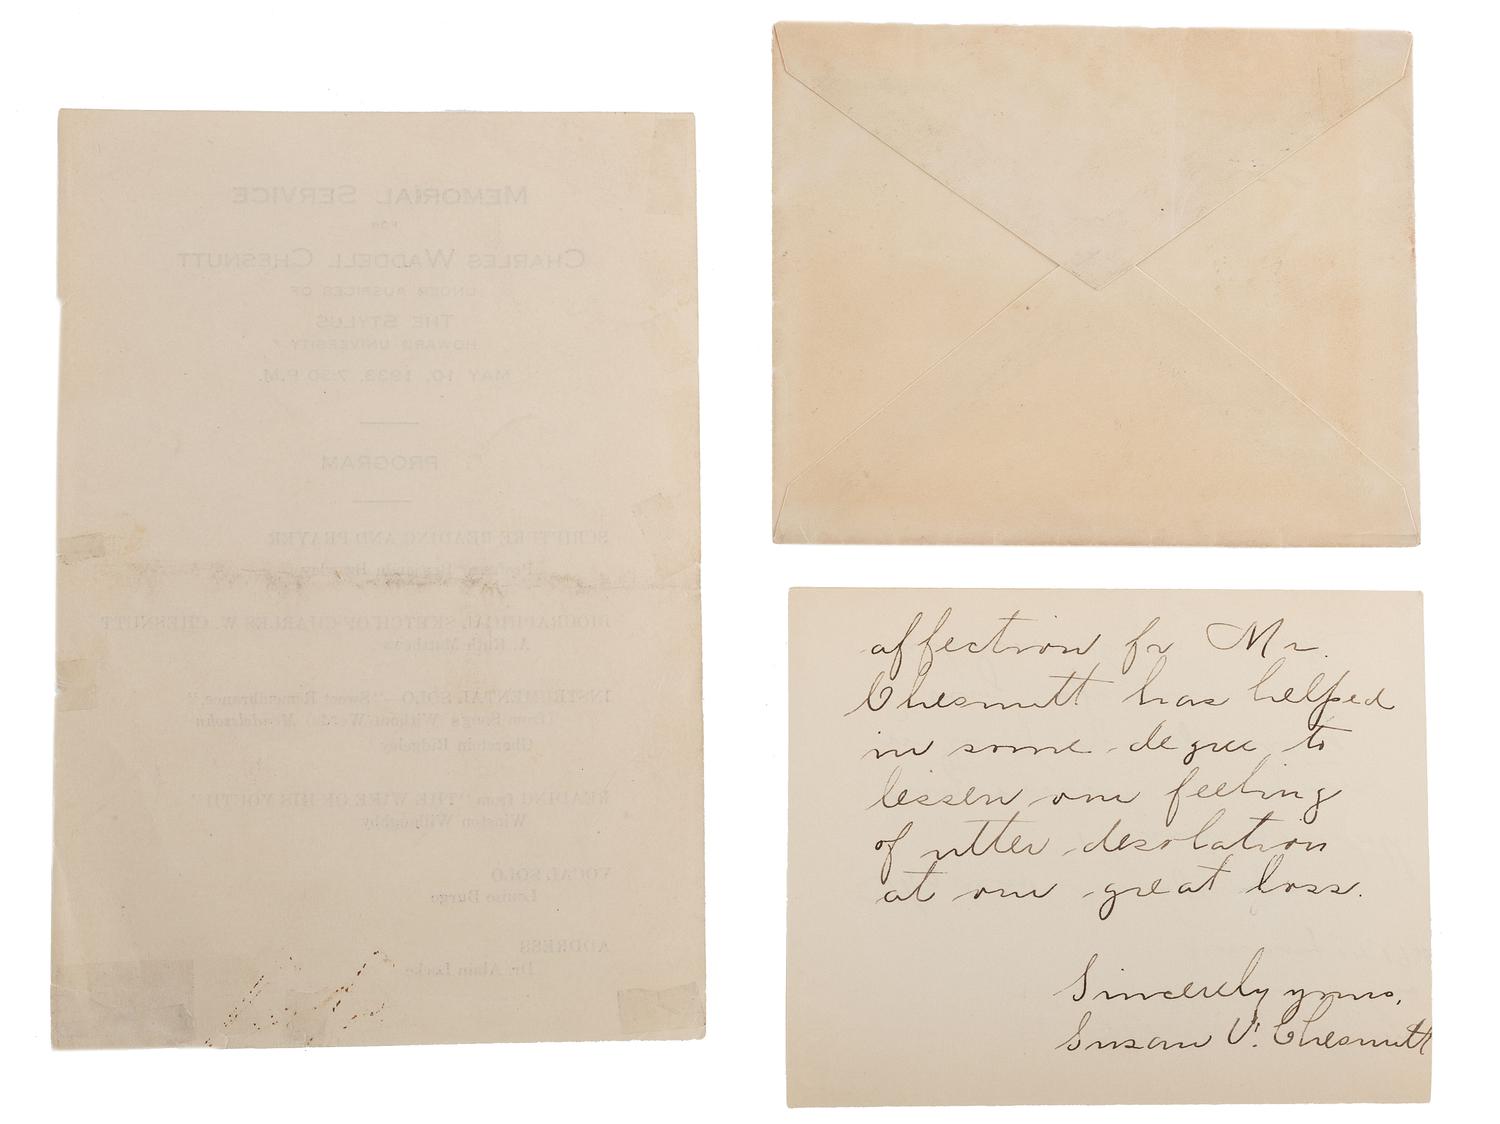 MEMORIAL SERVICE
FOR
CHARLES WADDELL CHESNUTT
UNDER AUSPICES OF
THE STYLUS
HOWARD UNIVERSITY
MAY 10, 1933, 7:30 P.M.
PROGRAM
SCRIPTURE READING AND PRAYER
BIOGRAPHICAL SKETCH OF CHARLES W. CHESNUTT
A. Ruth Matthews
INSTRUMENTAL SOLO—"Sweet Remembrance,"
(from Songs Without Words) Mendelssohn
Oberstein Ridgeley
READING from "THE WIFE OF HIS YOUTH"
Winston Willoughby
VOCAL SOLO
Louise Burge
ADDRESS
Dr. Alain Locke
affection for Mr.
Chesnutt has helped
in some degree to
lessen our feeling
of utter desolation
at our great loss.
Sincerely yours,
Susan U. Chesnutt